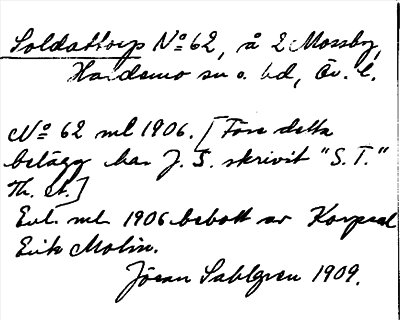 Soldattorp No 62, å 2 Mossby,
Hardemo sn o. hd, Ör. l.
No 62 ml 1906. [Före detta
belägg har J. S. skrivit "S. T."
Th. A.]
Enl. ml. 1906 bebott av Korpral
Erik Molin.
Jöran Sahlgren 1909.